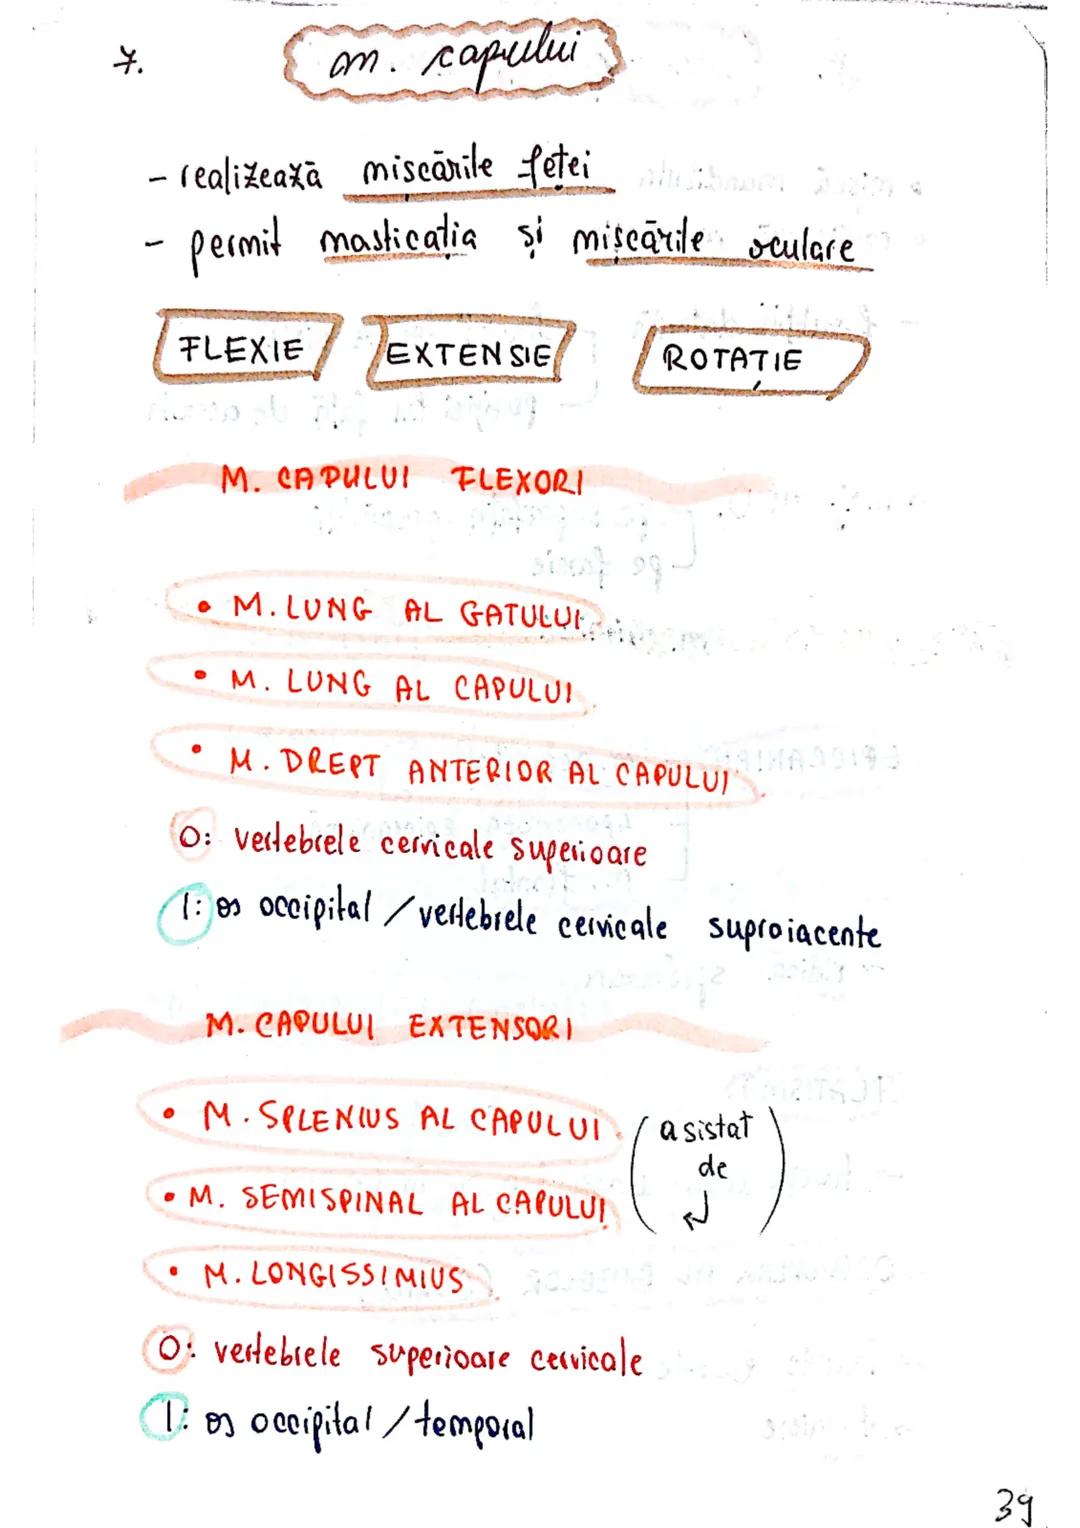 7.
m. capului
- realizează mișcările feței
- permit masticația și mișcările oculare
FLEXIE EXTENSIE ROTAȚIE
M. CAPULUI FLEXORI
• M. LUNG AL GATULUI
• M. LUNG AL CAPULUI
• M. DREPT ANTERIOR AL CAPULUI
O: vertebrele cervicale superioare
I: os occipital / vertebrele cervicale suproiacente
M. CAPULUI EXTENSORI
• M. SPLENIUS AL CAPULUI (asistat
de
• M. SEMISPINAL AL CAPULUI )
• M. LONGISSIMIUS
O: vertebrele superioare cervicale
I: os occipital / temporal
39